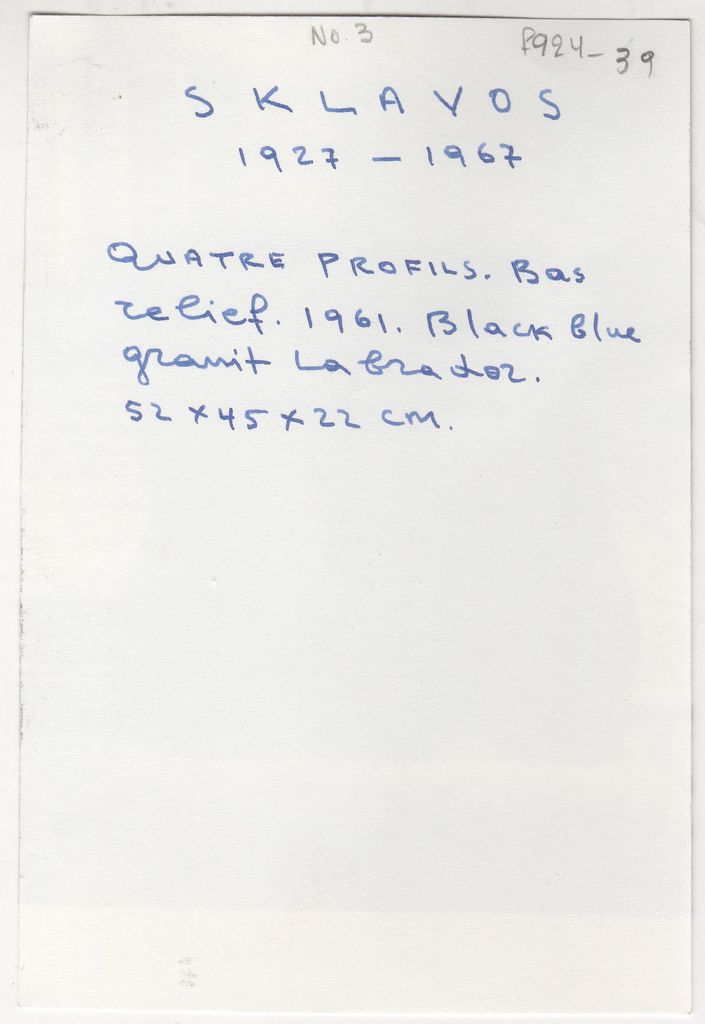 No. 3
P924-39
SKLAVOS
1927 - 1967
QUATRE PROFILS. Bas
relief. 1961. Black blue
granit Labrador.
52 x 45 x 22 cm.